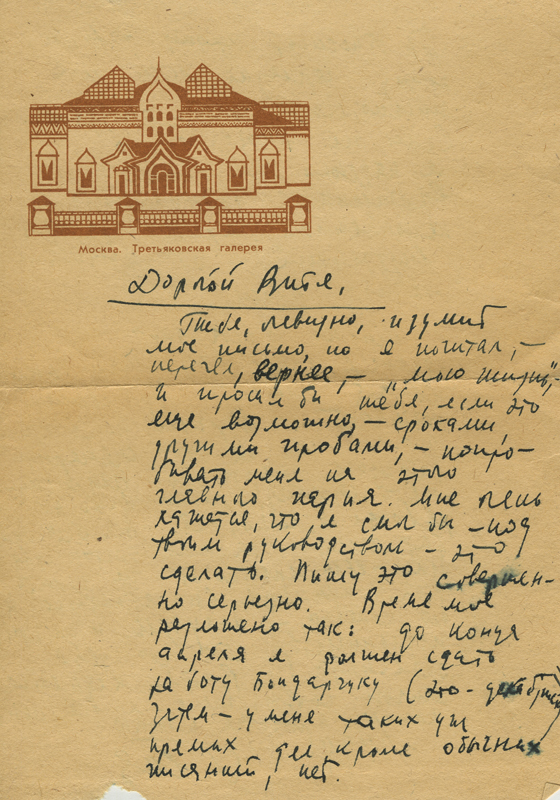 Москва. Третьяковская галерея
Дорогой Витя,
Тебя, очевидно, изумит
мое письмо, но я почитал, –
перечел, вернее, – „мою жизнь",–
и просил бы тебя, если это
еще возможно, – сроками,
другими пробами, – попро-
бовать меня на этого
главного парня. Мне очень
кажется, что я смог бы – под
твоим руководством – это
сделать. Пишу это совершен-
но серьезно. Время мое
разложено так: до конца
апреля я должен сдать
работу Бондарчуку (это – декабристы)
затем – у меня таких уж
прямых дел, кроме обычных
писаний, нет.